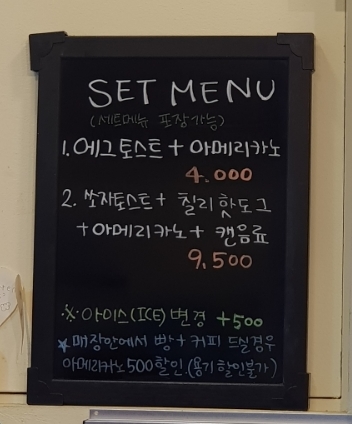 SET MENU
(세트메뉴 포장가능)
1. 에그토스트 + 아메리카노
4.000
2. 쏘자토스트 + 칠리핫도그
+ 아메리카노 + 캔음료
9.500
※ 아이스(ICE) 변경 +500
★ 매장안에서 빵 + 커피 드실경우
아메리카노 500할인.(용기할인불가)